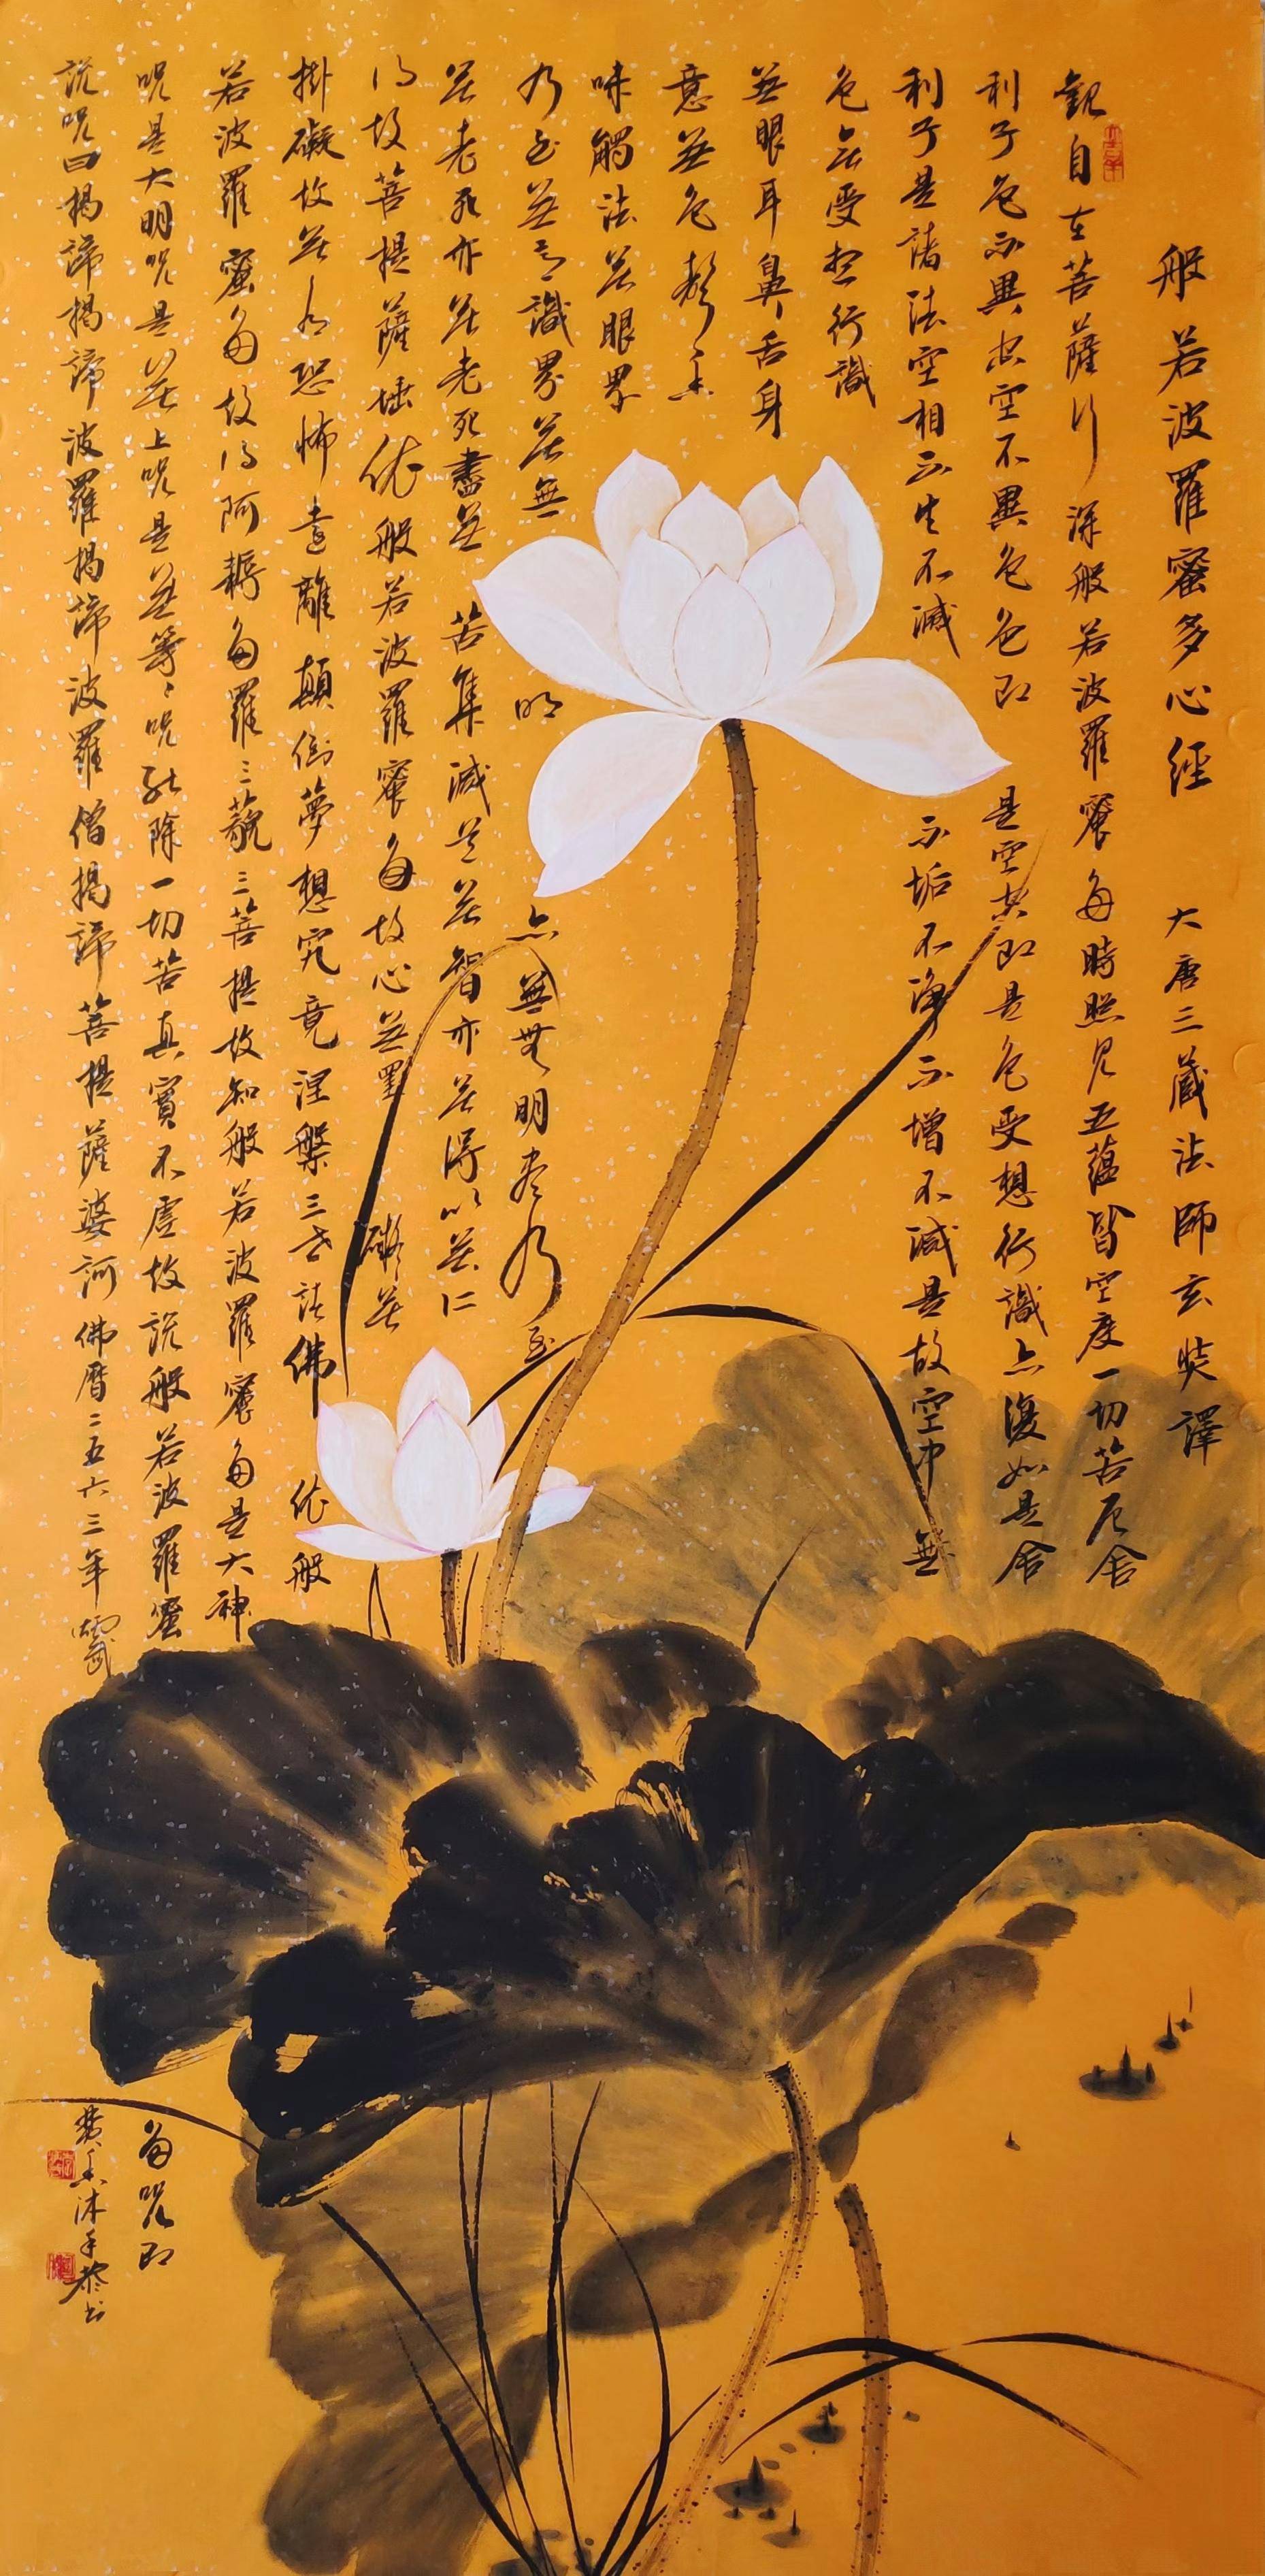 般若波羅蜜多心經 大唐三藏法師玄奘譯
觀自在菩薩行深般若波羅蜜多時照見五蘊皆空度一切苦厄舍
利子色不異空空不異色色即是空空即是色受想行識亦復如是舍
利子是諸法空相不生不滅不垢不淨不增不減是故空中無
色無受想行識
無眼耳鼻舌身
意無色聲香
味觸法無眼界
乃至無意識界無無明亦無無明盡乃至
無老死亦無老死盡無苦集滅道無智亦無得以無所
得故菩提薩埵依般若波羅蜜多故心無罣礙無
掛礙故無有恐怖遠離顛倒夢想究竟涅槃三世諸佛依般
若波羅蜜多故得阿耨多羅三藐三菩提故知般若波羅蜜多是大神
呪是大明呪是無上呪是無等等呪能除一切苦真實不虛故說般若波羅蜜多呪即
說呪曰揭諦揭諦波羅揭諦波羅僧揭諦菩提薩婆訶佛曆二五六三年焚香沐手恭书